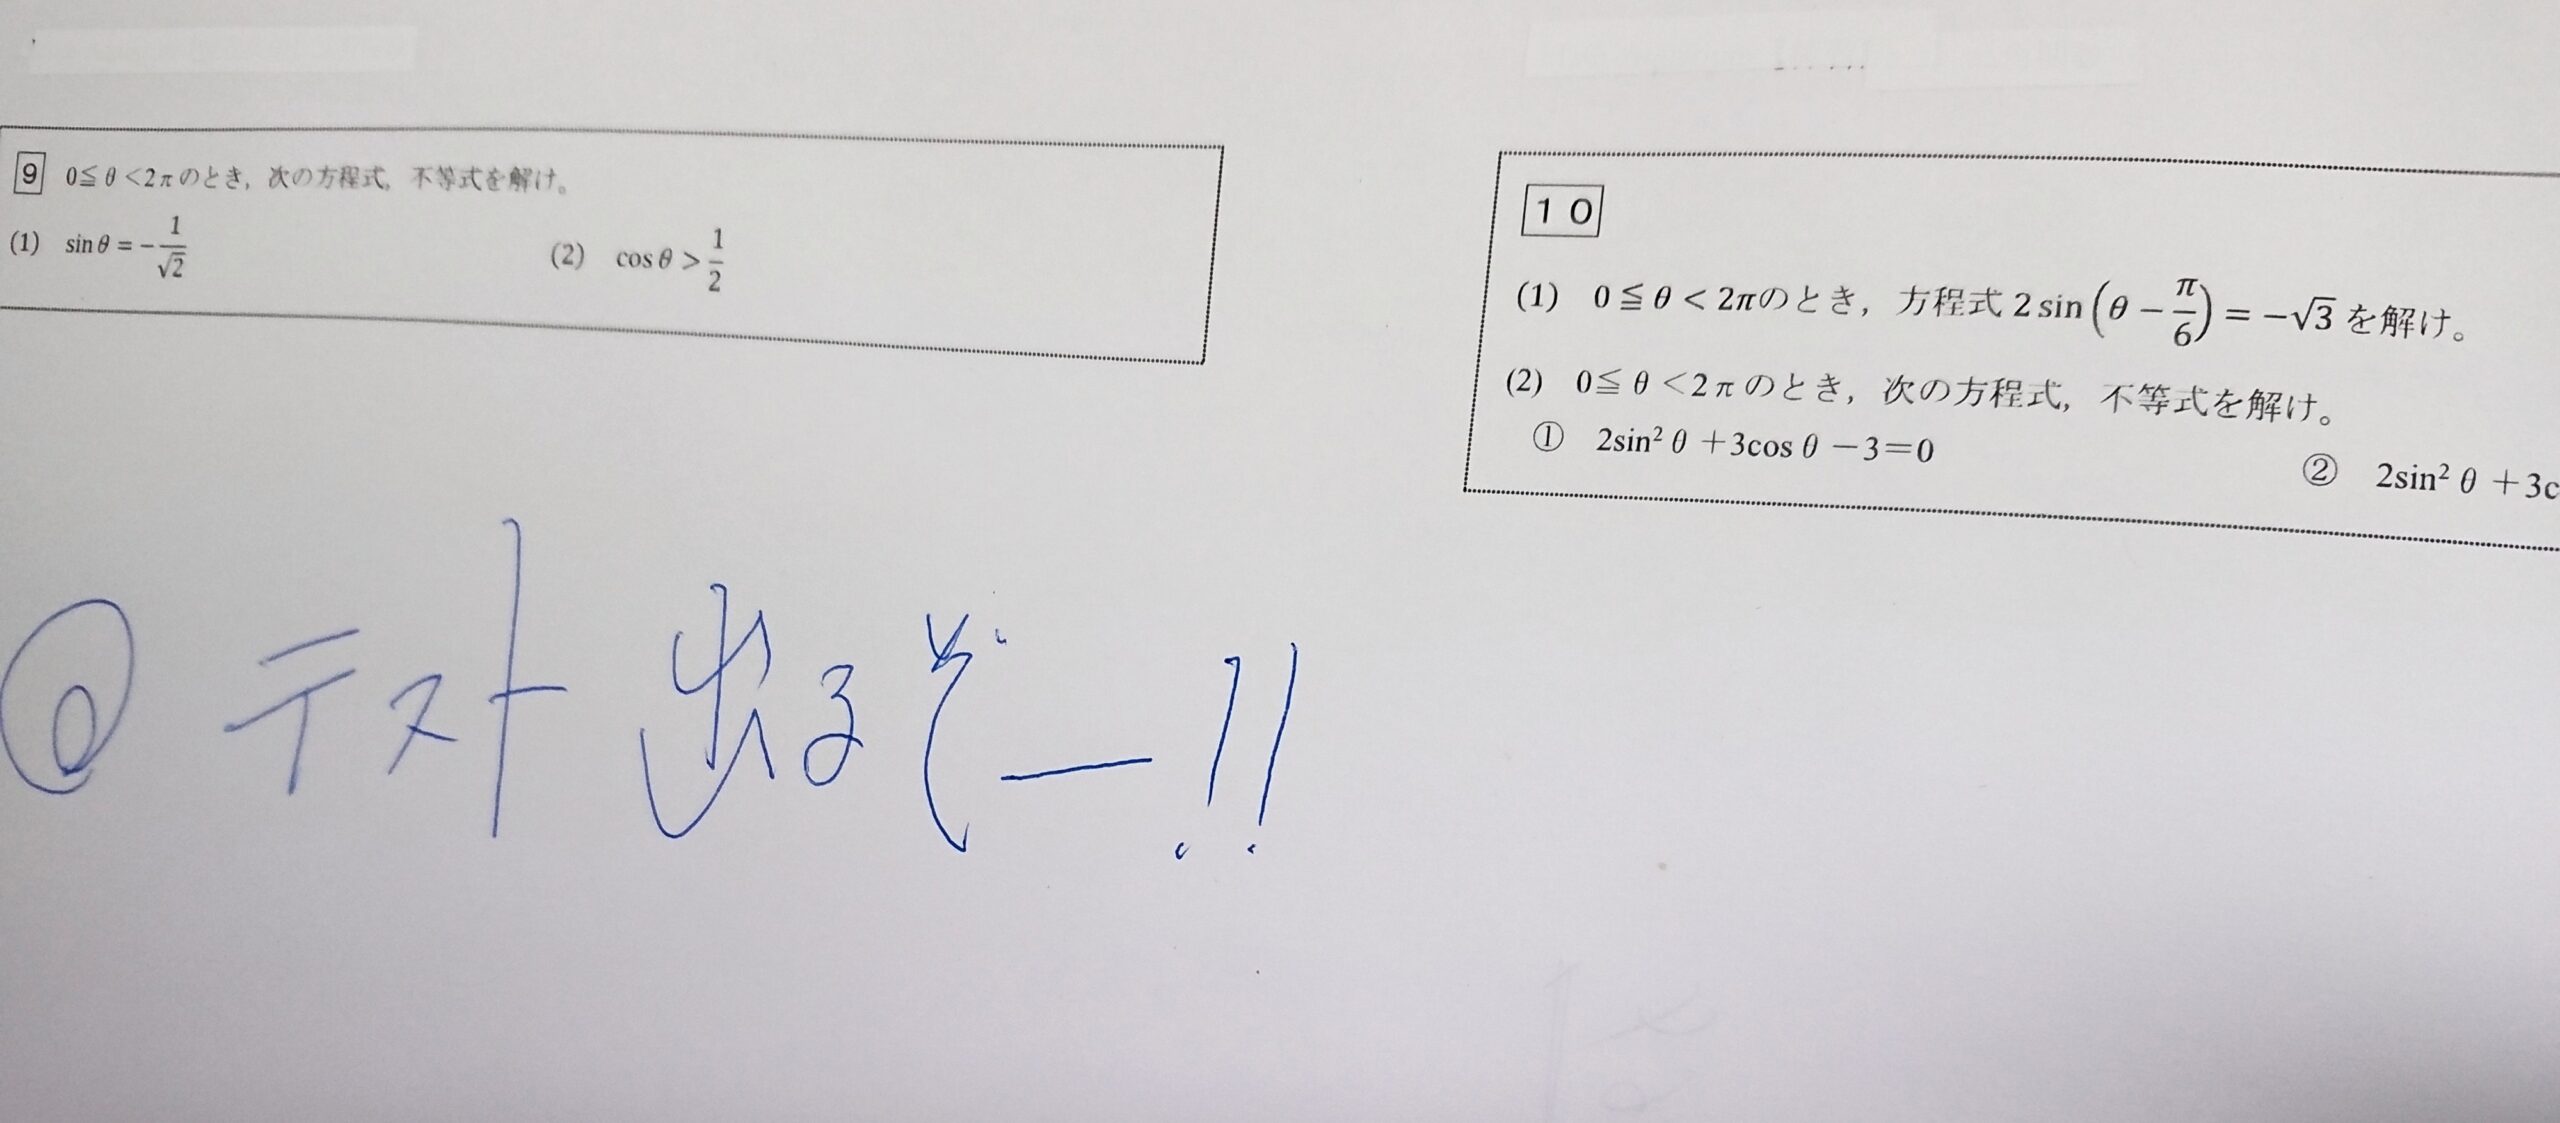 9 0≦θ<2πのとき，次の方程式，不等式を解け。
(1) sinθ=-1/√2 (2) cosθ>1/2
10
(1) 0≦θ<2πのとき，方程式 2 sin(θ-π/6)=-√3 を解け。
(2) 0≦θ<2πのとき，次の方程式，不等式を解け。
① 2sin²θ+3cosθ-3=0 ② 2sin²θ+3c
◎ テスト出るぞー!!